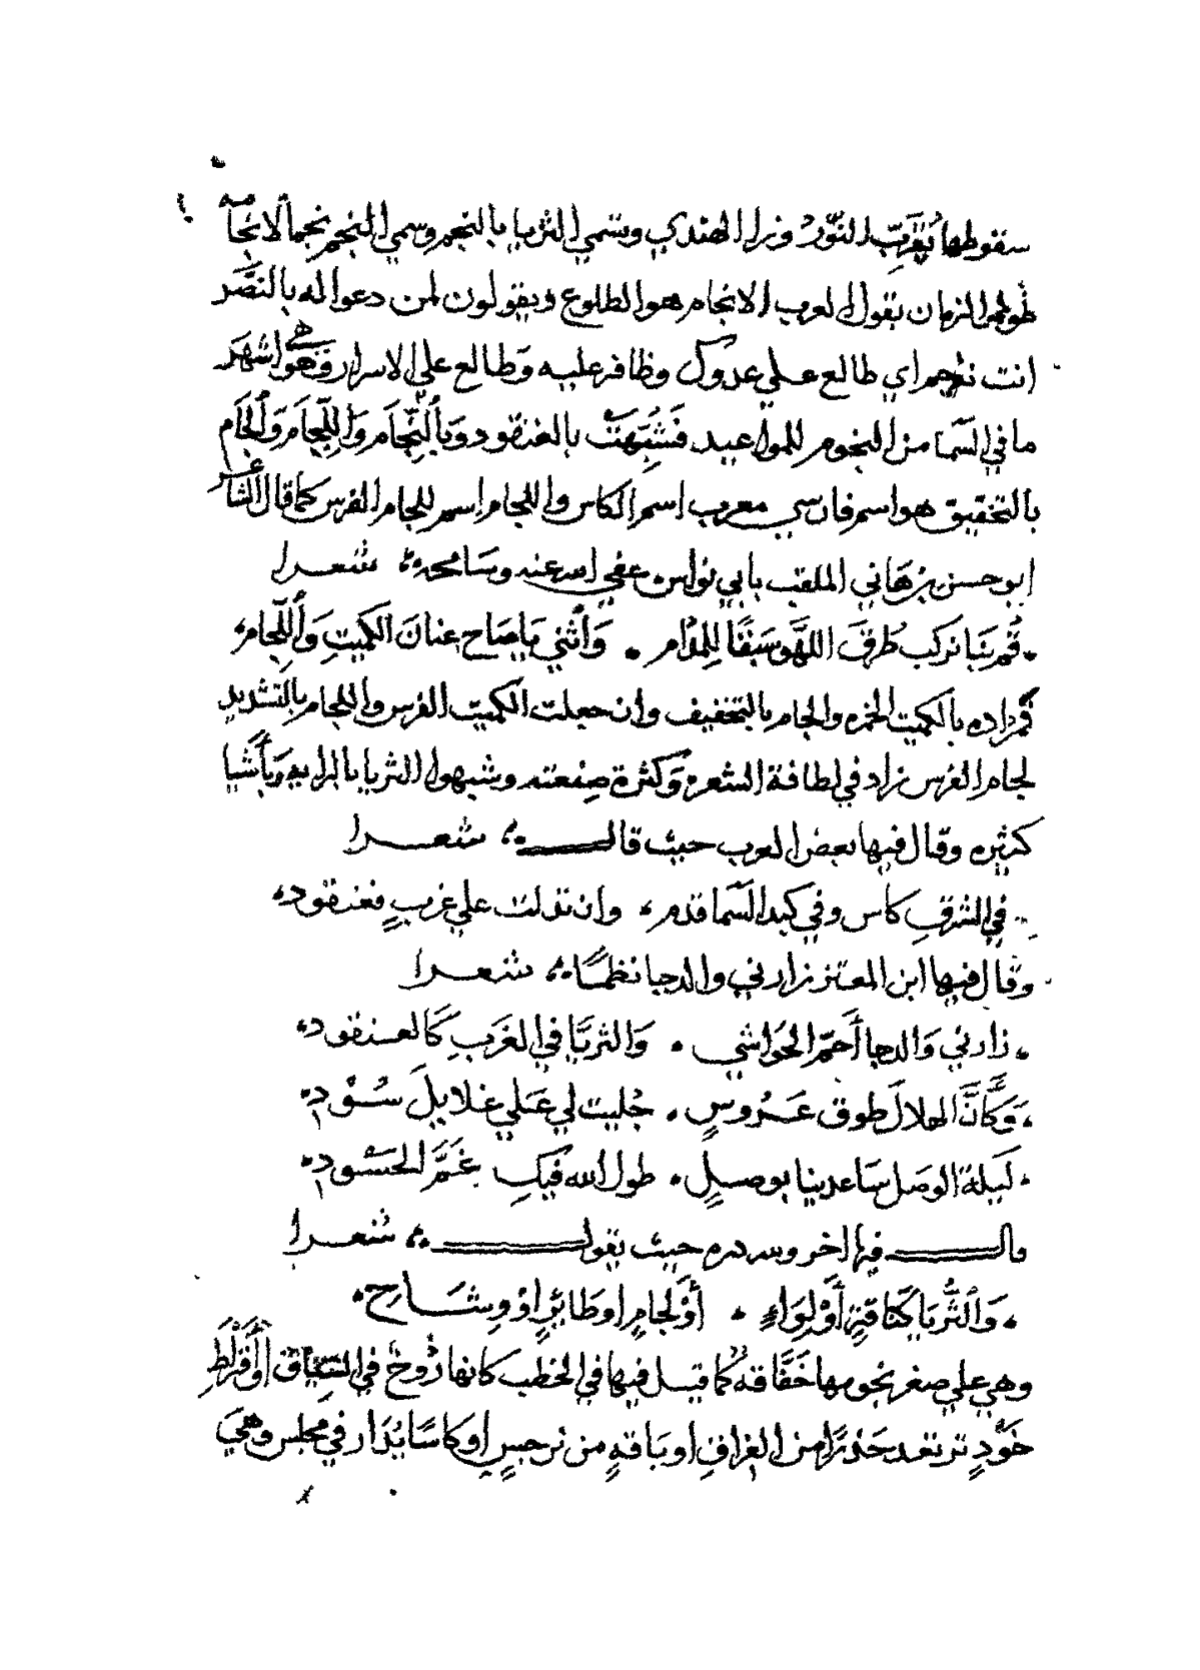 سقوطها تغرب النور وزاد الهندي وتسمي الثريا بالنجم وسمي النجم نجما لانجامه
الزمان يقول العرب الانجام هو الطلوع ويقولون لمن دعوا له بالنصر
انت نجم اي طالع علي عدوك وظافر عليه وَطالع علي الاسرار وهي اشهر
ما في السَما من النجوم للمواعيد فَشُبِّهَتْ بالعنقود وَبِالنِّجَامِ وَاللِّجَامِ وَالجَام
بالتحقيق هو اسم فارسي معرب اسم الكاس واللجام اسم للجام الفرس كما قال الشاعر
ابو حسن بن هَاني الملقب بابي نواس عفي الله عنه وسَامحه شعرا
قُم بِنَا نركب طُرقَ اللهَّو سَبقًا لِلمدَام . وَأثنِي يَا صَاح عِنانَ الكميتِ وَاللِّجام
فمراده بالكميت الخمره والجام بالتخفيف وان جعلت الكميت الفرس واللجام بالتشديد
لجام الفرس زاد في لطافة الشعر وَكثرة صِنعته وشبهوا الثريا بالرايه وَبأشيا
كثيره وقال فيها بعض العرب حيث قال شعرا
في الشرقِ كاس وفي كبد السَما قدم وان تدلت علي غربٍ فعنقود
وقال فيها ابن المعتز زارني والدجا نظمًا شعرا
زارني وَالدجا أَحمّ الحَوَاشي . وَالثريَّا في الغَربِ كَالعنقود
وَكَأَنَّ الهلالَ طوق عَرُوسٍ . جُليت لي عَلي غلايلَ سُوْدِ
لَيلة الوصَل سَاعدينا بوصلٍ . طول الله فيكِ غَمَّ الحَسُودِ
وقال فيها اخر ولله دره حيث يقول شعرا
وَالثُّريَا كَنَاقةٍ أَوْ لِوَاءٍ . أَوْ لجامٍ او طَائرٍ اوْ وِشَاحِ
وهي علي صغر نجومها خَفَّاقه كما قيل فيها في الخطب كانها رُوحٌ في السِّيَاق أَوْ قُرْطِ
خَوْدٍ ترتعد حَذرًا من الفراقِ او بَاقةٍ من نرجسٍ او كَاسًا يُدَار في مجلس وهيَ